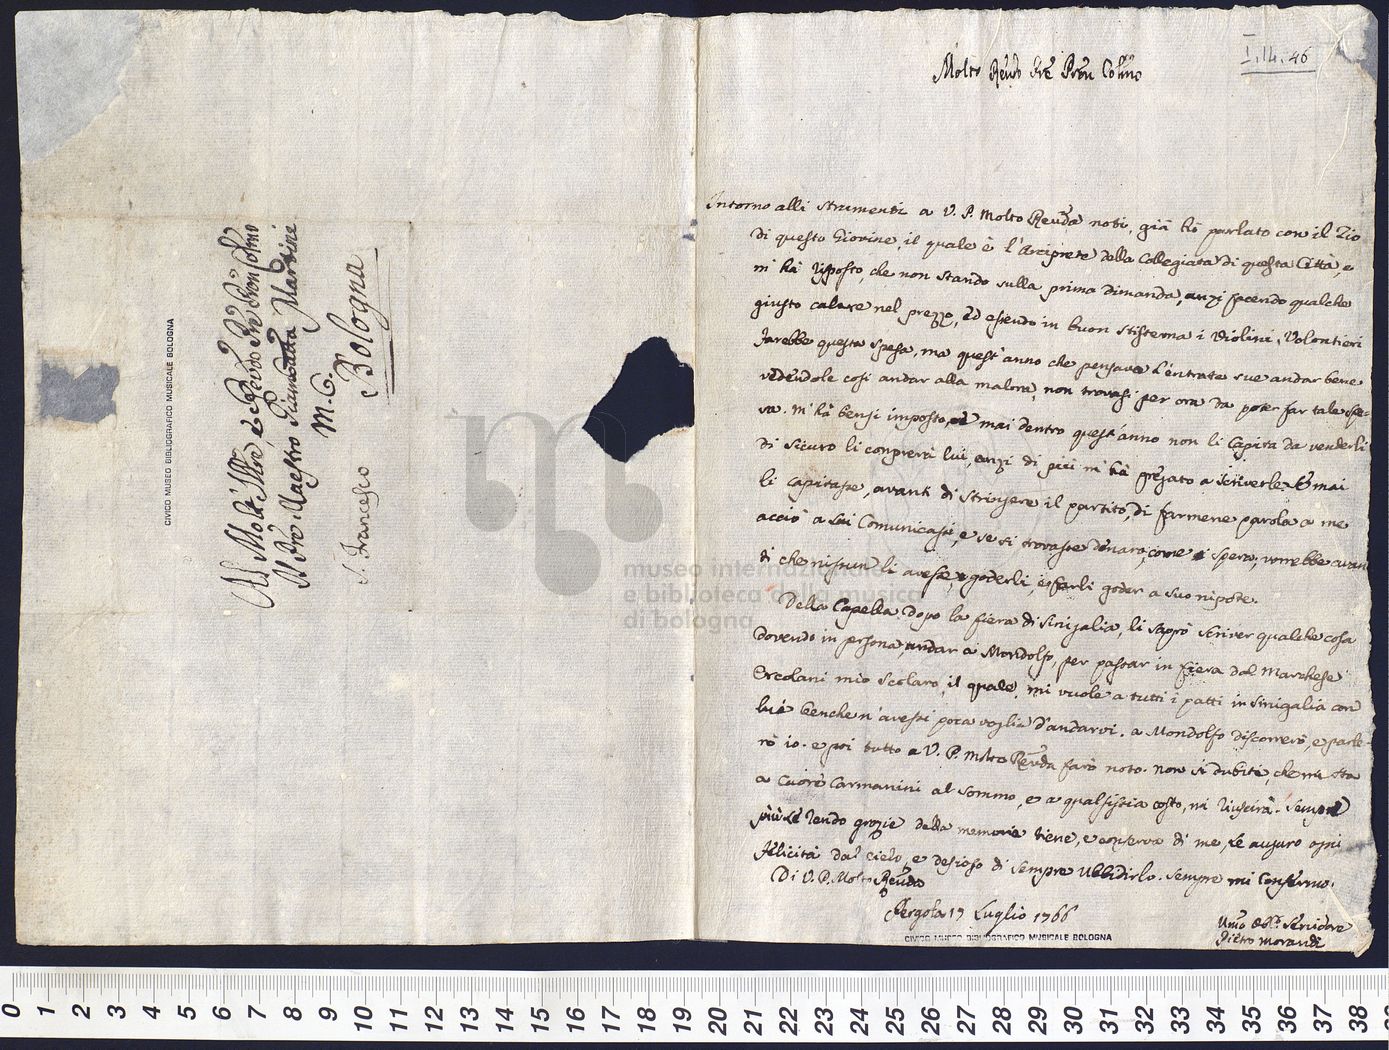 I.14.46
Molto Reudo Pre Pron Colmo
Intorno alli strumenti a V. P. Molto Reuda noti, già hò parlato con il Zio
di questo Giovine, il quale è l'Arciprete della Collegiata di questa Città, e
m'hà risposto, che non stando sulla prima dimanda, anzi facendo qualche
giusto calare nel prezzo, ed essendo in buon sistema i Violini, Volontieri
farebbe questa spesa, ma quest'anno che pensava l'entrate sue andar bene
vedendole così andar alla malora, non trovasi per ora da poter far tale spe-
sa. m'hà bensì imposto, se mai dentro quest'anno non li Capita da venderli
di sicuro li comprerà lui, anzi di più m'hà pregato a scriverle se mai
li Capitasse, avanti di stringere il partito, di farmene parola a me
acciò a lui Comunicassi, e se si trovasse denaro, come spera, vorrebbe avan
di che nissun li avesse goderli, e farli goder a suo nipote.
Della Capella dopo la fiera di Sinigalia, li saprò scriver qualche cosa
dovendo in persona andar a Mondolfo, per passar in fiera dal Marchese
Ercolani mio scolaro, il quale mi vuole a tutti i patti in Sinigalia con
lui benche n'avessi poca voglia d'andarvi. a Mondolfo discorrerò, e parle-
rò io. e poi tutto a V. P. Molto Reuda farò noto. non si dubiti, che mi sta
a cuore Carmanini al sommo, e a qualsisia costo, mi riuscirà. Sempre
più le rendo grazie della memoria tiene, e conserva di me, le auguro ogni
felicità dal cielo, e desioso di sempre ubbidirlo. sempre mi Confermo.
Di V. P. Molto Reuda
Pergola 17 Luglio 1766
Umo Servidore
Pietro Morandi
CIVICO MUSEO BIBLIOGRAFICO MUSICALE BOLOGNA
Al Molto Illre, e Reudo Pre Pron Colmo
Il Pre Maestro Giambatta Martini
M. C.
S. Francesco
Bologna
CIVICO MUSEO BIBLIOGRAFICO MUSICALE BOLOGNA
museo internazionale
e biblioteca della musica
di bologna
0 1 2 3 4 5 6 7 8 9 10 11 12 13 14 15 16 17 18 19 20 21 22 23 24 25 26 27 28 29 30 31 32 33 34 35 36 37 38